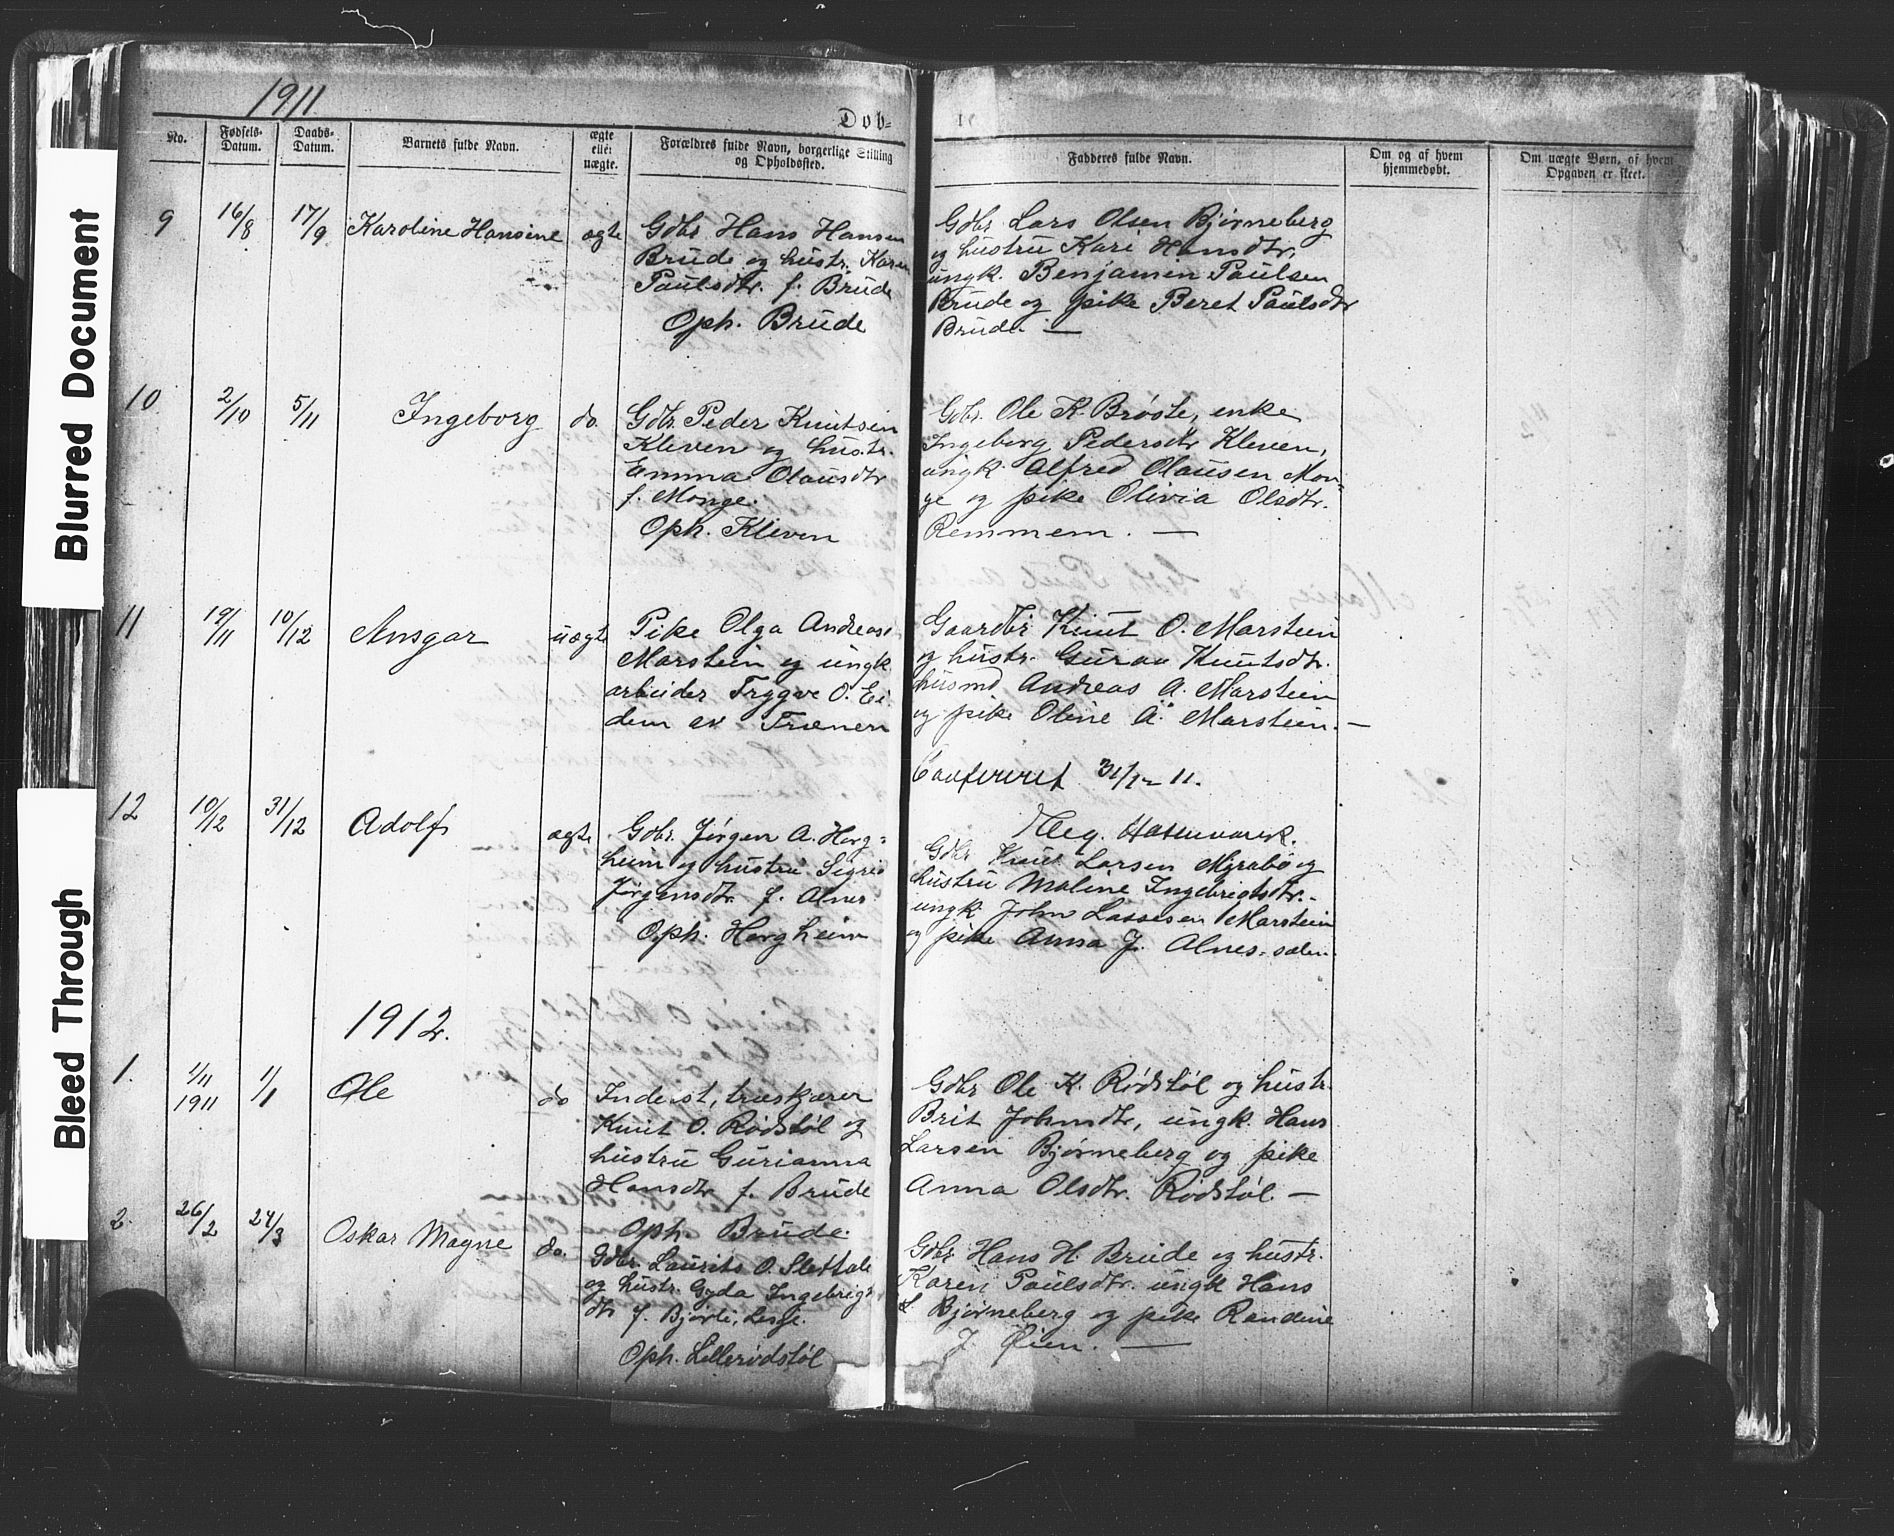 Blurred Document
Bleed Through
1911
Dob-
No.
Fødsels-
Datum.
Daabs-
Datum.
Barnets fulde Navn.
ægte
eller
uægte.
Forældres fulde Navn, borgerlige Stilling
og Opholdssted.
Fadderes fulde Navn.
Om og af hvem
hjemmedøbt.
Om uægte Børn, af hvem
Opgaven er skeet.
9
16/8
17/9
Karoline Hansine
ægte
Gdbr. Hans Hansen
Brude og hustr. Karen
Paulsdtr. f. Brude
Oph. Brude
Gdbr. Lars Olsen Bjørneberg
og hustru Kari Hansdtr,
ungk. Benjamin Paulsen
Brude og pike Beret Paulsdtr
Brude. —
10
2/10
5/11
Ingeborg
do.
Gdbr. Peder Knutsen
Kleven og hustr.
Emma Olausdtr
f. Monge.
Oph. Kleven
Gdbr. Ole K. Brøste, enke
Ingeborg Pedersdtr Kleven,
ungk. Alfred Olausen Mon-
ge og pike Olivia Olsdtr.
Remmem. —
11
19/11
10/12
Ansgar
uægte
Pike Olga Andreas.
Marstein og ungk.
arbeider Trygve O. Ei-
dem av Trænen
Gaardbr Knut O. Marstein
og hustr. Guran Knutsdtr.
husmd Andreas A. Marstein
og pike Oline A. Marstein. —
Confereret 31/12 11.
12
10/12
31/12
Adolf
ægte
Gdbr. Jørgen A. Horg-
heim og hustru Sigrid
Jørgensdtr. f. Alnes
Oph. Horgheim
Gdbr Knut Larsen Myrabø og
hustru Maline Ingebrigtsdtr.-
ungk. John Lassesen Marstein
og pike Anna J. Alnes-sæter.
1912.
1.
1/11
1911
1/1
Ole
do
Inderst, træskjærer
Knut O. Rødstøl og
hustru Gurianna
Hansdtr f. Brude
Oph. Brude
Gdbr Ole K. Rødstøl og hustr.
Brit Johnsdtr, ungk. Hans
Larsen Bjørneberg og pike
Anna Olsdtr. Rødstøl. —
2.
26/2
24/3
Oskar Magne
do.
Gdbr. Laurits O. Slettale
og hustr. Gyda Ingebrigt-
dtr f. Bjørli, Lesje.
Oph. Lillerødstøl
Gdbr Hans H. Brude og hustr.
Karen Paulsdtr. ungk Hans
L. Bjørneberg og pike Randine
J. Øien. —